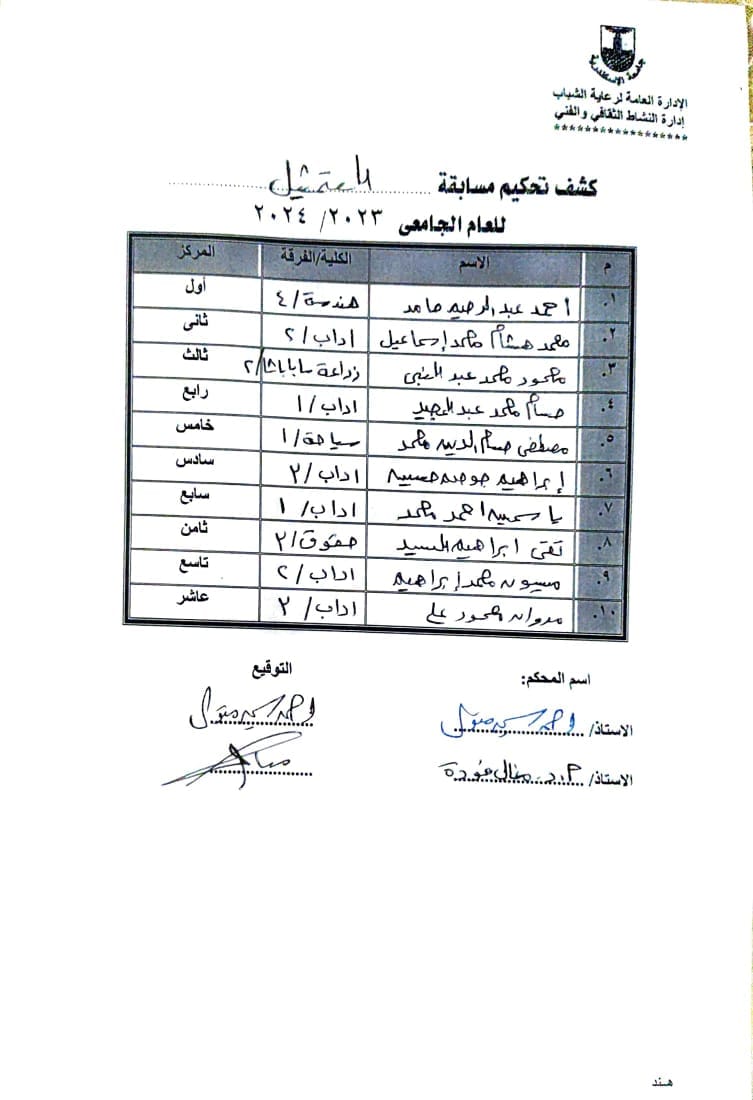 جامعة الإسكندرية
الإدارة العامة لرعاية الشباب
إدارة النشاط الثقافي والفني
******************
كشف تحكيم مسابقة ....... التمثيل .......
للعام الجامعى ٢٠٢٣/ ٢٠٢٤
م الاسم الكلية/الفرقة المركز
.١ احمد عبد الرحيم حامد هندسة/٤ أول
.٢ محمد هشام محمد إسماعيل اداب/٢ ثانى
.٣ محمود محمد عبد النبى زراعة سابا باشا/٢ ثالث
.٤ حسام محمد عبد المجيد اداب/١ رابع
.٥ مصطفى حسام الدين محمد سياحة/١ خامس
.٦ إبراهيم حسيبه اداب/٣ سادس
.٧ ياسمين احمد محمد اداب/١ سابع
.٨ تقى ابراهيم السيد حقوق/٣ ثامن
.٩ ميسون محمد إبراهيم اداب/٢ تاسع
.١٠ مروان محمود على اداب/٣ عاشر
اسم المحكم: التوقيع
الاستاذ/ احمد السيد متولى احمد السيد متولى
الاستاذ/ م.د. منال فودة منال
هند